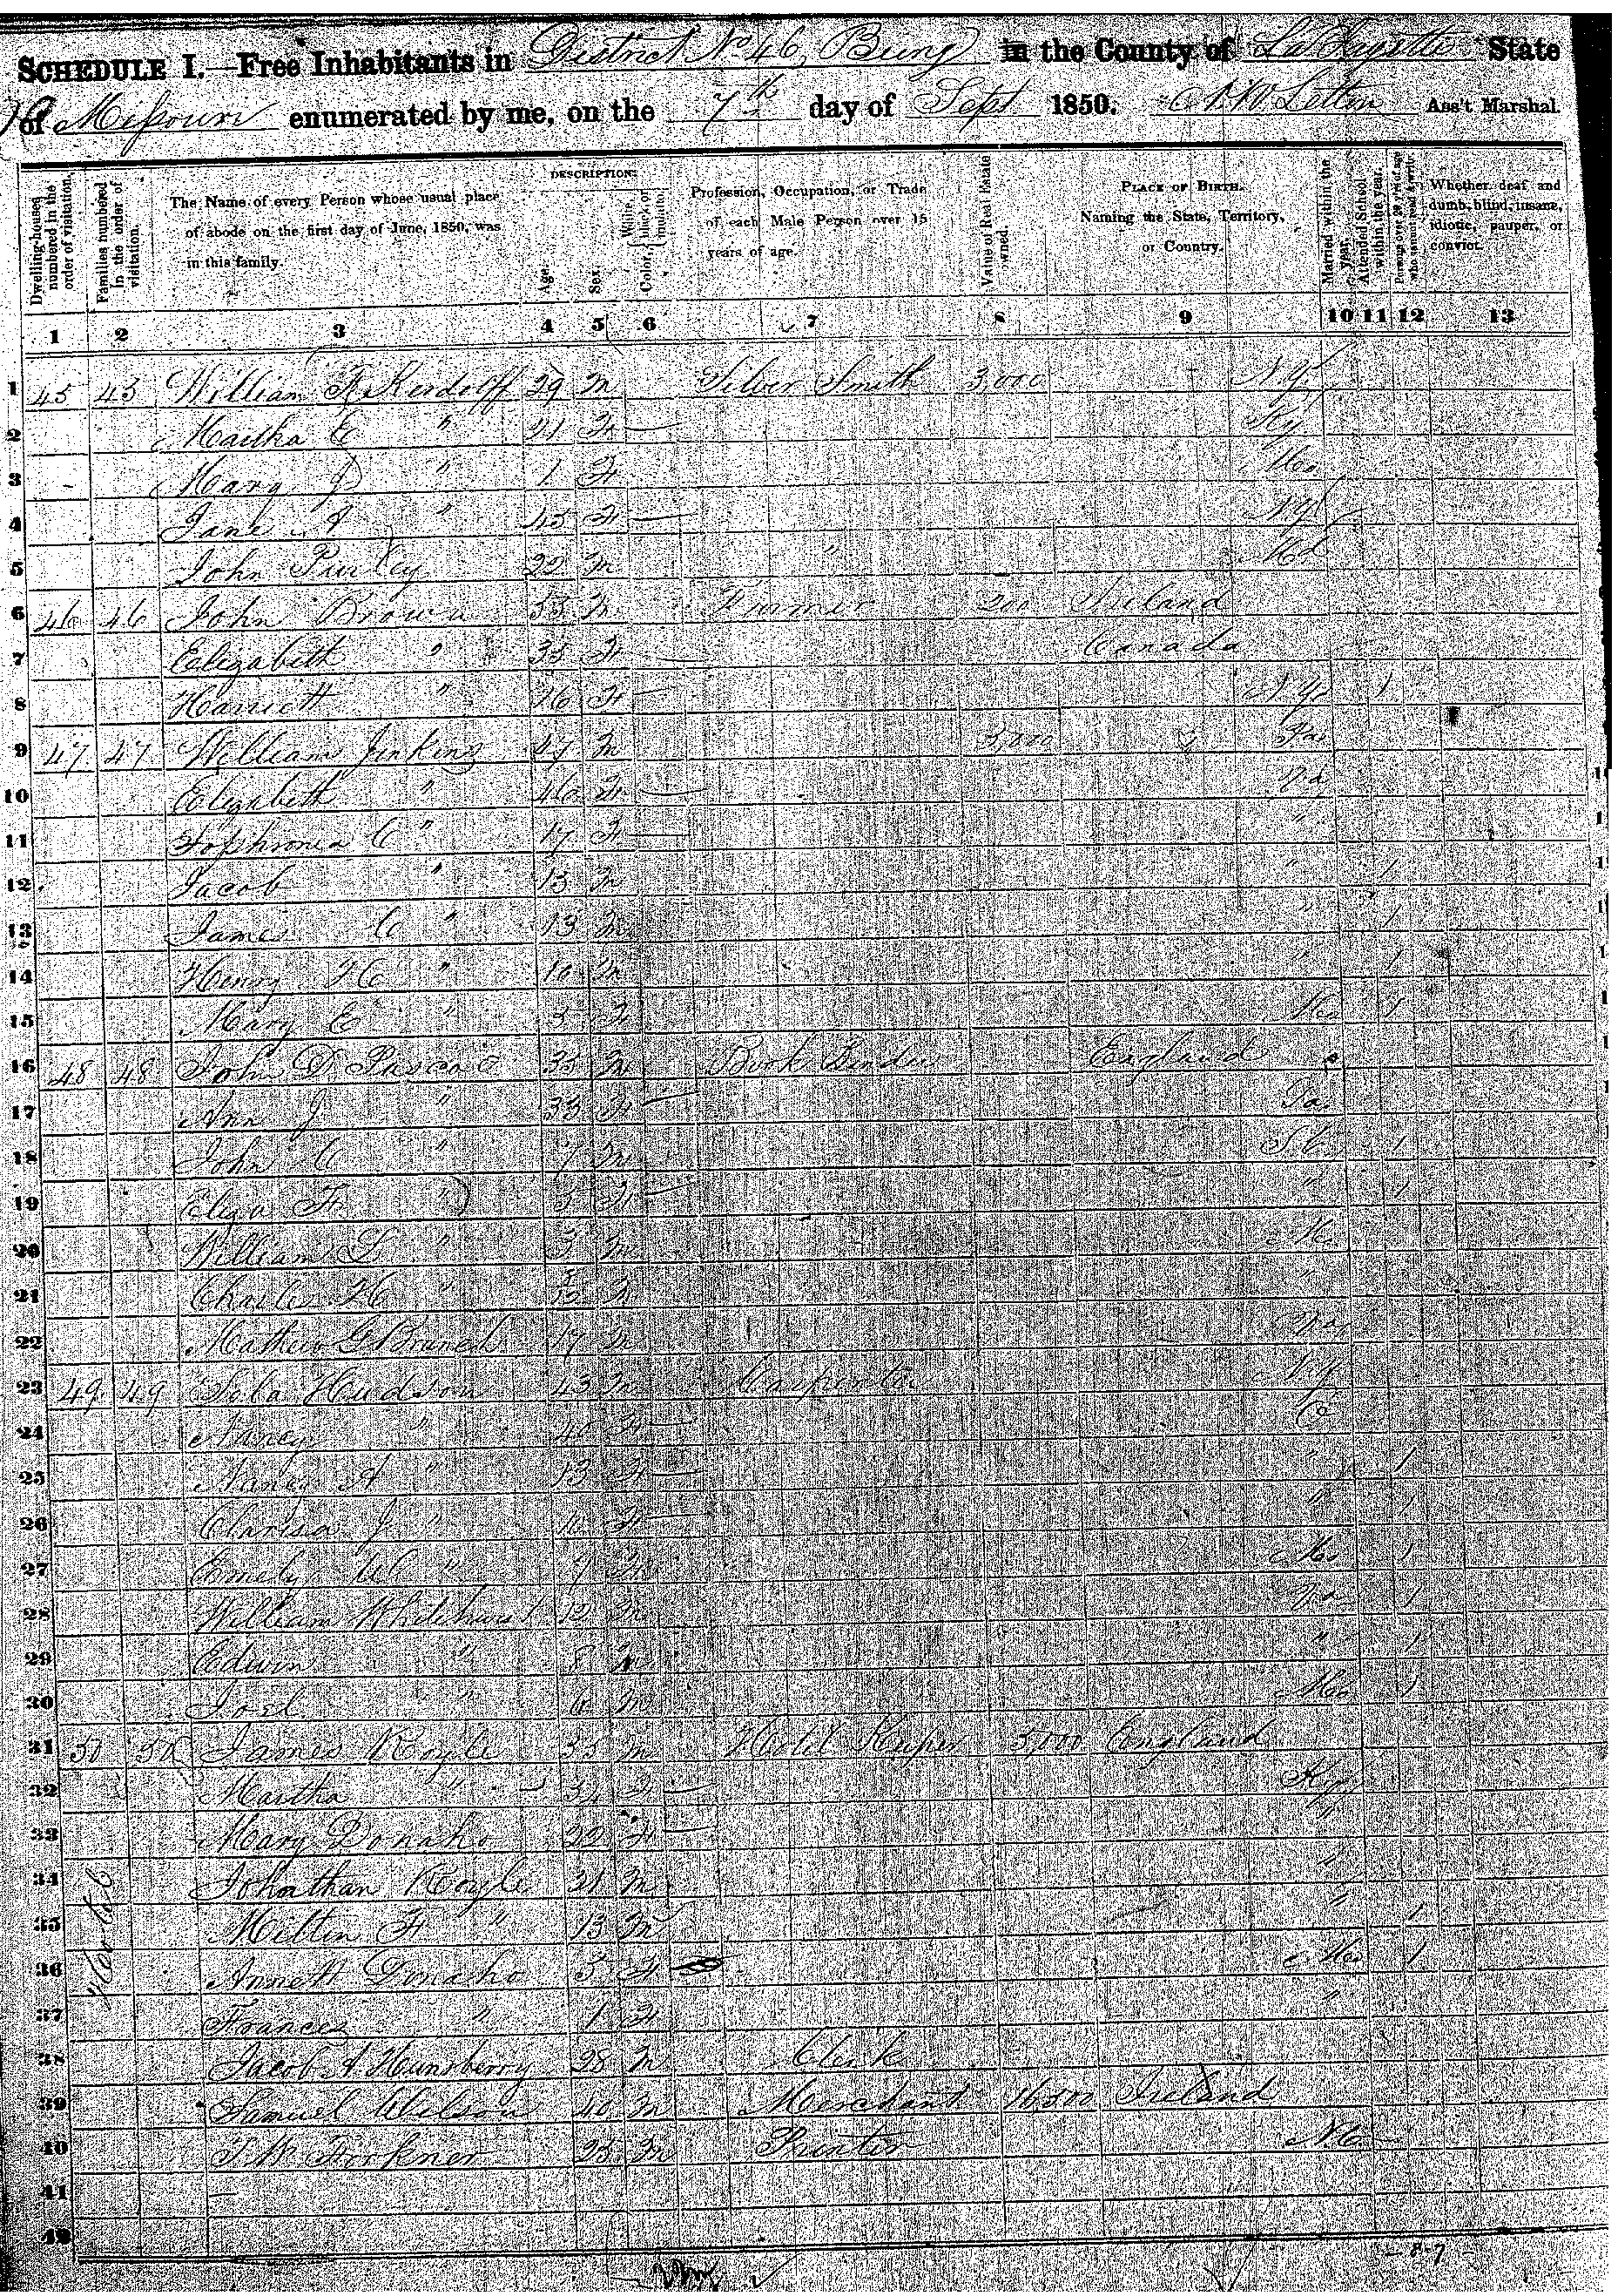 SCHEDULE I.—Free Inhabitants in District No 46, Being in the County of La Fayette State
of Missouri enumerated by me, on the 7th day of Sept 1850. Ass't Marshal.
Dwelling-houses numbered in the order of visitation.
Families numbered in the order of visitation.
The Name of every Person whose usual place of abode on the first day of June, 1850, was in this family.
DESCRIPTION.
Age.
Sex.
Color, White, black, or mulatto.
Profession, Occupation, or Trade of each Male Person over 15 years of age.
Value of Real Estate owned.
PLACE OF BIRTH. Naming the State, Territory, or Country.
Married within the year.
Attended School within the year.
Persons over 20 y'rs of age who cannot read & write.
Whether deaf and dumb, blind, insane, idiotic, pauper, or convict.
1 2 3 4 5 6 7 8 9 10 11 12 13
1 45 45 William 29 M Silver Smith 3,000 N.Y.
2 Martha E " 21 F Ky
3 Mary J " 1 F Mo
4 Jane A " 45 F N.Y.
5 John 22 M " Md
6 46 46 John Brown 55 M Farmer 200 Ireland
7 Elizabeth " 35 F Canada
8 Harriett " 16 F N.Y. 1
9 47 47 William Jinkins 47 M 3,000 Pa
10 Elizabeth " 46 F Va
11 Sophronia C " 17 F "
12 Jacob " 15 M " 1
13 James C " 13 M " 1
14 Henry H " 10 M " 1
15 Mary E " 5 F Mo 1
16 48 48 John D. Pascoe 35 M Book Binder England
17 Ann J " 33 F Pa
18 John C " 7 M 1
19 Eliza F. " 5 F " 1
20 William T " 3 M Mo
21 Charles H " M "
22 Mathew G Branch 17 M Va
23 49 49 Hudson 43 M Carpenter N.Y.
24 Nancy " 40 F O
25 Nancy A " 13 F " 1
26 Clarisa J " 10 F " 1
27 Emely " 7 M Mo 1
28 William Whitehurst 12 M Va 1
29 Edwin " 8 M " 1
30 Joel " 6 M Mo 1
31 50 50 James Royle 35 M Hotel Keeper 5,000 England
32 Martha " 34 F Ky
33 Mary Donaho 22 F "
34 Johathan Royle 21 M "
35 Milton F " 13 M " 1
36 Annett Donaho 5 F Mo 1
37 Frances " 1 F "
38 Jacob A Hunsberry 28 M Clerk
39 Samuel Wilson 40 M Merchant 16,500 Ireland
40 T. W. Forkner 25 M Printer N.C.
41
42